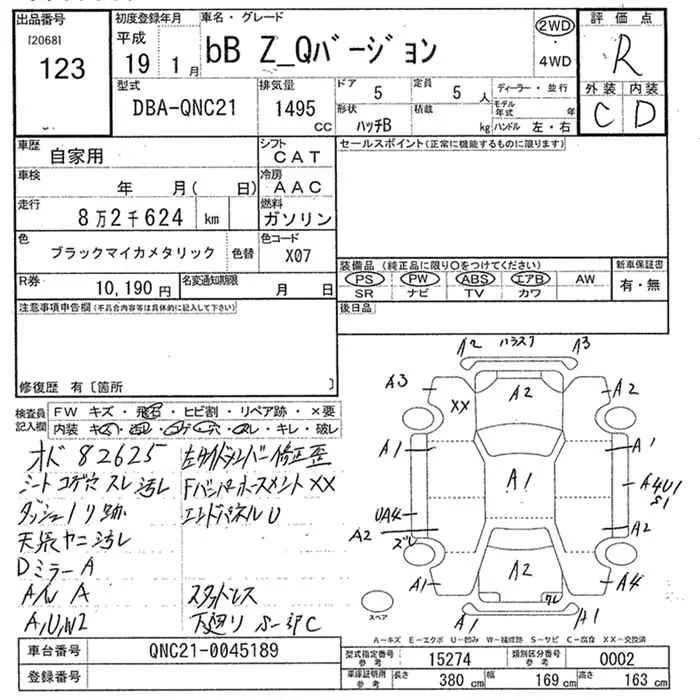 出品番号 初度登録年月 車名・グレード 評価点
[2068] 平成 bB Z_Qバージョン 2WD R
123 19 1月 4WD
型式 排気量 ドア 定員 ディーラー・並行 外装 内装
DBA-QNC21 1495 CC 5 5人 モデル年式 年 C D
形状 積載
ハッチB kg ハンドル 左・右
車歴 シフト セールスポイント(正常に機能するものに限ります)
自家用 CAT
車検 冷房
年 月( 日) AAC
走行 燃料
8万2千624 km ガソリン
色 色コード
ブラックマイカメタリック 色替 X07
装備品(純正品に限り○をつけてください) 新車保証書
R券 名変通知期限 PS PW ABS エアB AW 有・無
10,190円 月 日 SR ナビ TV カワ
注意事項申告欄(不具合内容等は具体的に記入して下さい) 後日品
A2 ハラスク A3
修復歴 有〔箇所 〕
A3 XX A2 A2
検査員記入欄 FW キズ・飛石・ヒビ割・リペア跡・×要
内装 キレ・キレ・破レ
オド 82625 左サイドメンバー修正歪
A1 A1 A1
シート コゲ穴 スレ 汚レ FバンパーホースメントXX
A4U1 S1
ダッシュノリ跡 エンドパネルU
UA4 A2 ズレ A2
天張ヤニ汚レ
DミラーA
A1 A2 A4
A/W A スタッドレス
A,U,W2 下廻りS一部C
スペア A1 A1
A-キズ E-エクボ U-凹み W-補修跡 S-サビ C-腐食 XX-交換済
車台番号 QNC21-0045189 型式指定番号 参考 15274 類別区分番号 参考 0002
登録番号 車庫証明用 参考 長さ 380 cm 幅 169 cm 高さ 163 cm